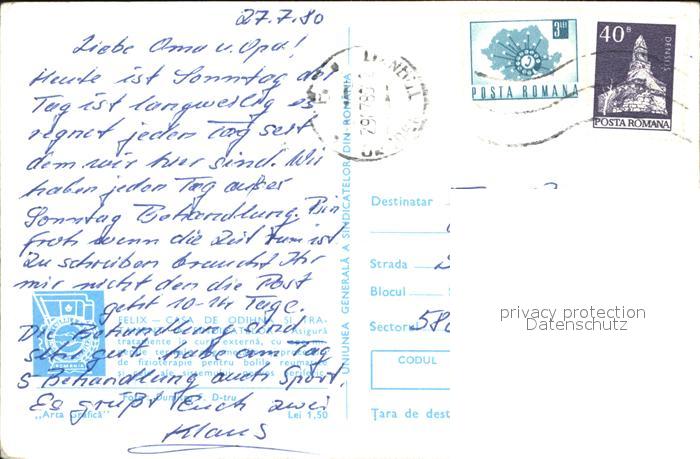 27.7.80
Liebe Oma u. Opa!
Heute ist Sonntag der
Tag ist langweilig es
regnet jeden Tag seit
dem wir hier sind. Wir
haben jeden Tag außer
Sonntag Behandlung. Bin
froh wenn die Zeit rum ist
zu schreiben braucht Ihr
mir nicht den die Post
geht 10-14 Tage.
Die Behandlung sind
sehr gut, habe am Tag
5 Behandlung auch Sport.
Es grüßt Euch zwei
Klaus
FELIX – CASA DE ODIHNĂ ȘI TRA-
asigură
tratamente în cură externă, cu
de fizioterapie pentru boli reuma-
Foto: D-tru
„Arta Grafică"
Lei 1,50
ROMANIA
UNIUNEA GENERALĂ A SINDICATELOR DIN ROMÂNIA
3 LEI
POSTA ROMANA
40 B
DENSUS
POSTA ROMANA
Destinatar
Strada
Blocul
Sectorul 580
CODUL
Țara de dest
privacy protection
Datenschutz